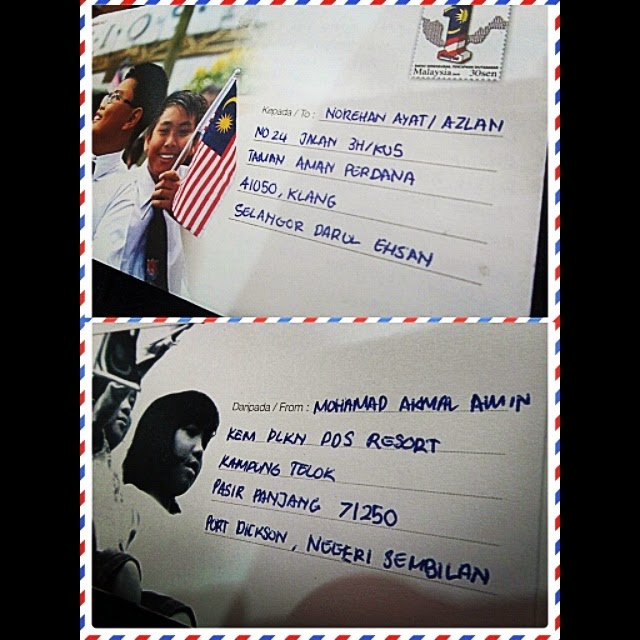 Malaysia 30sen
Kepada / To : NOREHAN AYATI / AZLAN
NO 24 JALAN 3H/KU5
TAMAN AMAN PERDANA
41050, KLANG
SELANGOR DARUL EHSAN
Daripada / From : MOHAMAD AKMAL AIMIN
KEM PLKN PDS RESORT
KAMPUNG TELOK
PASIR PANJANG 71250
PORT DICKSON, NEGERI SEMBILAN